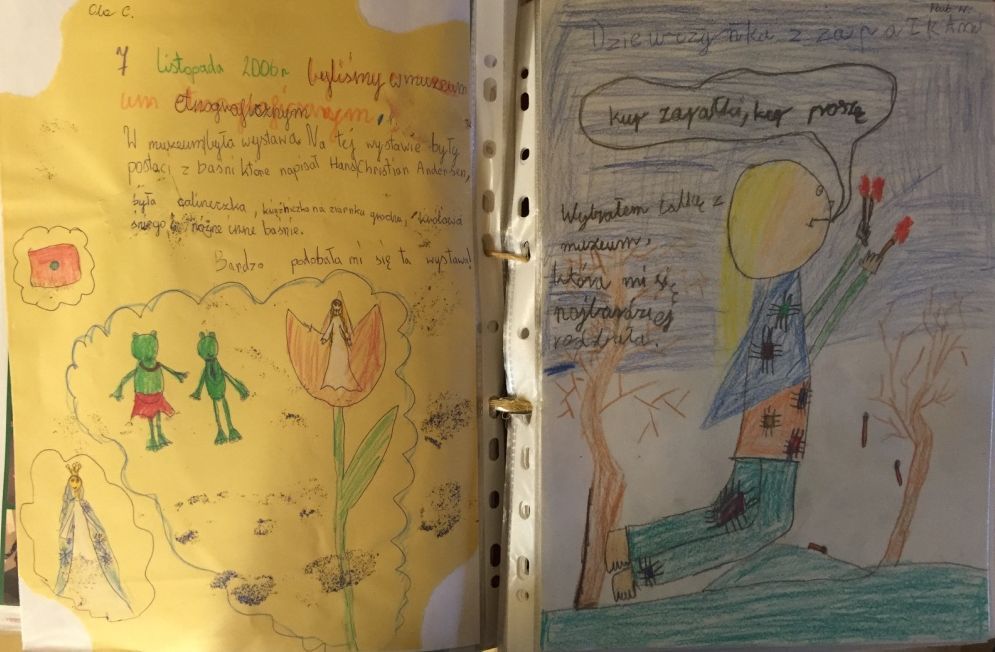 Ola C.
7 listopada 2006r byliśmy w muze
um etnograficznym.
W muzeum była wystawa Na tej wystawie były
postaci z baśni które napisał Hans Christian Andersen,
była calineczka, księżniczka na ziarnku grochu, królowa
śniegu i różne inne baśnie.
Bardzo podobała mi się ta wystawa!
Dziewczynka z zapałkami
kup zapałki, kup proszę
Wybrałem lalkę z
muzeum,
która mi się
najbardziej